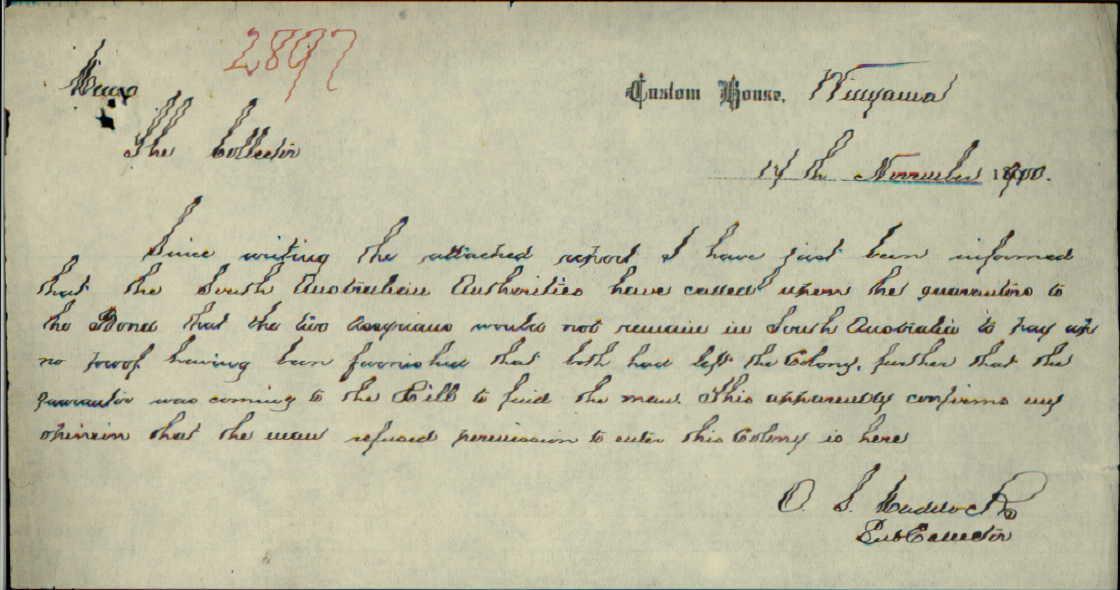 2897
Memo
Custom House, Winyama
The Collector
14th November 1900.
Since writing the attached report I have just been informed
that the South Australian Authorities have called upon the guarantors to
the Bond that the two Assyrians would not remain in South Australia to pay up
no proof having been furnished that both had left the Colony, further that the
guarantor was coming to the Hill to find the man. This apparently confirms my
opinion that the man refused permission to enter this Colony is here
O. S. Maddocks
Sub Collector